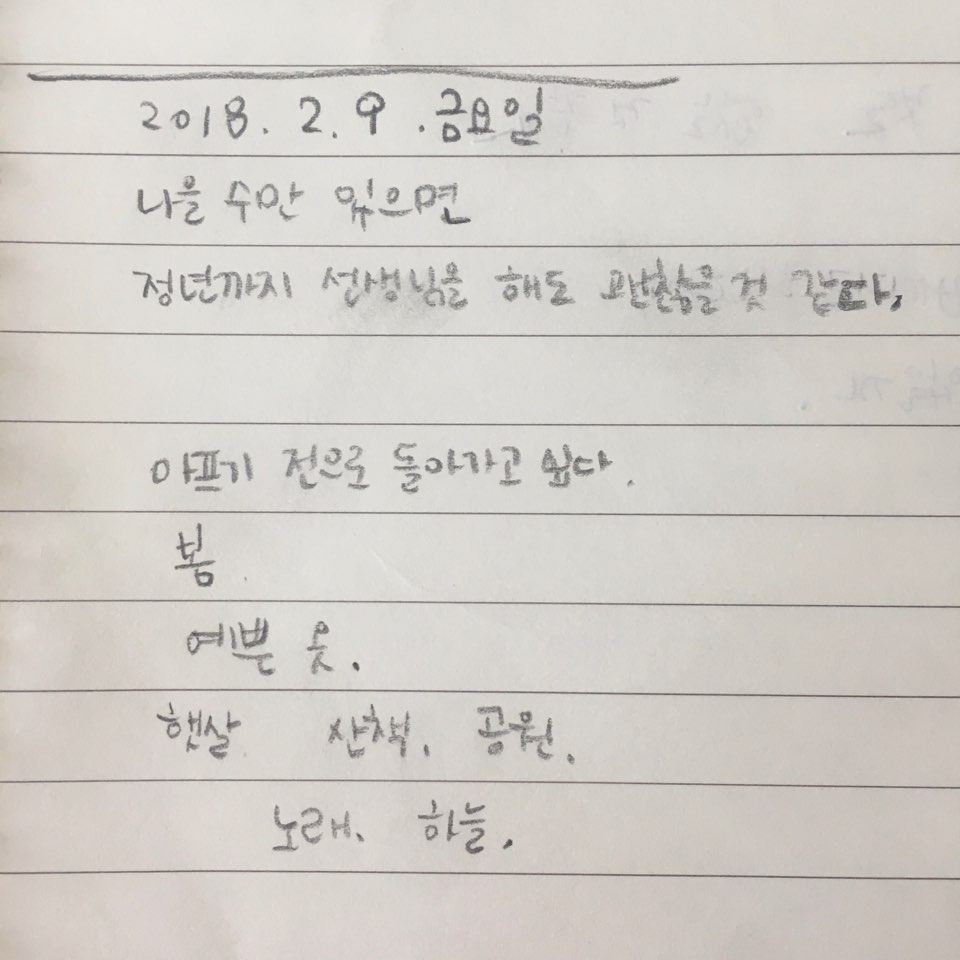 2018. 2. 9. 금요일
나을 수만 있으면
정년까지 선생님을 해도 괜찮을 것 같다.
아프기 전으로 돌아가고 싶다.
봄.
예쁜 옷.
햇살 산책. 공원.
노래. 하늘.